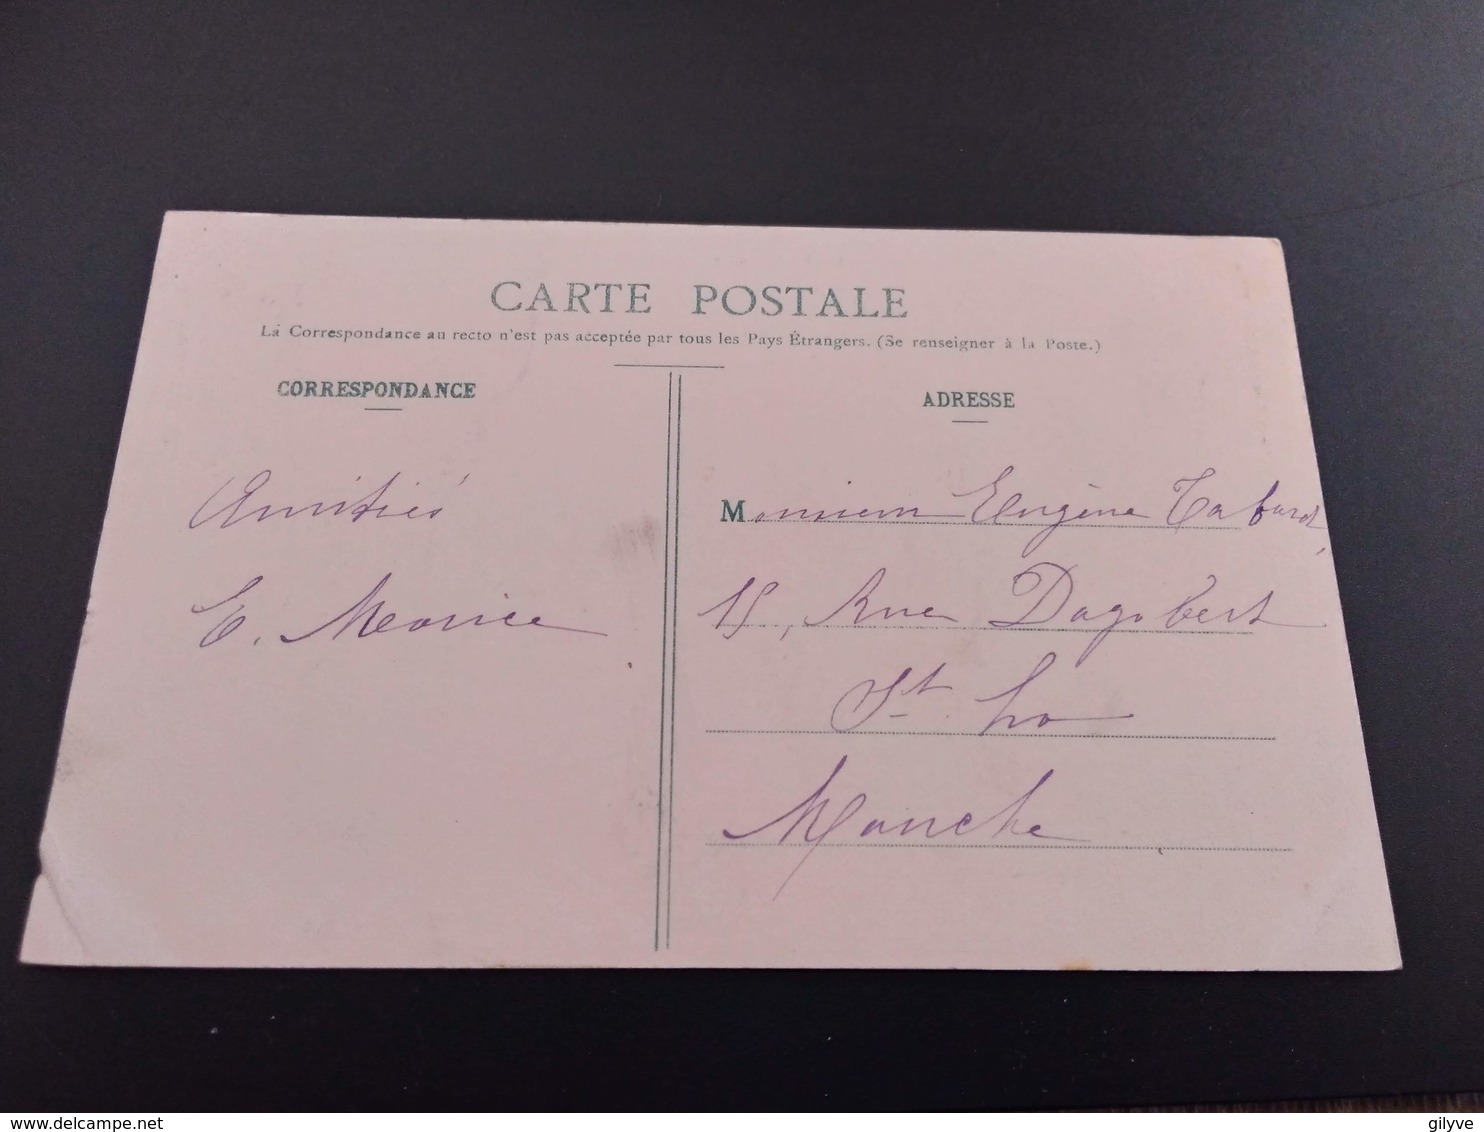 CARTE POSTALE
La Correspondance au recto n'est pas acceptée par tous les Pays Étrangers. (Se renseigner à la Poste.)
CORRESPONDANCE
Amitiés
E. Meorice
ADRESSE
Monsieur Eugène Tabard
15, Rue Dagobert
St. Lo
Manche
delcampe.net
gilyve